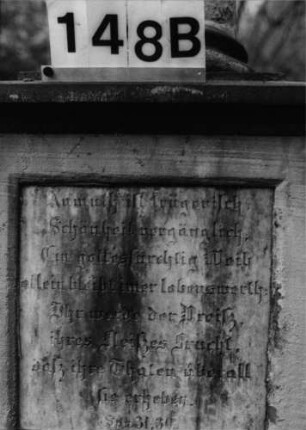 148B
Anmuth ist trügerisch
Schönheit vergänglich,
Ein gottesfürchtig Weib
allein bleibt immer lobenswerth.
Ihr werde der Preis
ihres Fleißes Frucht,
daß ihre Thaten überall
sie erheben.
31,30